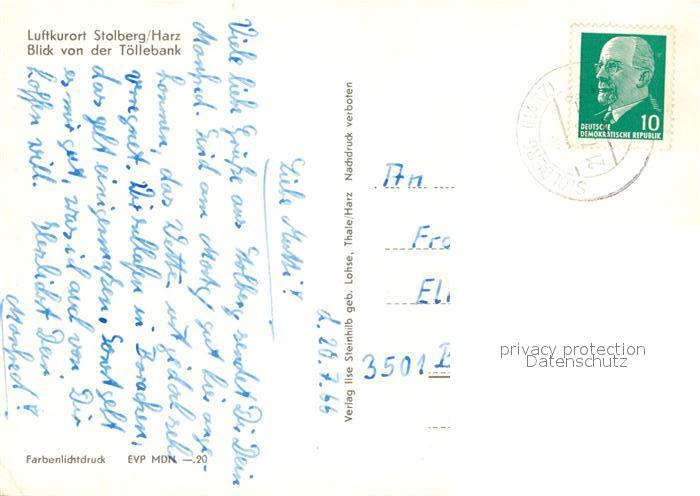 Luftkurort Stolberg/Harz
Blick von der Töllebank
d. 20.7.66
Liebe Mutti!
Viele liebe Grüße aus Stolberg sendet Dir Dein
Manfred. Sind am Montag gut hier ange-
kommen, das Wetter ist jedoch sehr
verregnet. Wir schlafen in Baracken,
das geht einigermaßen. Sonst geht
es mir gut, was ich auch von Dir
hoffen will. Herzlichst Dein
Manfred!
Farbenlichtdruck EVP MDN —.20
Verlag Ilse Steinhilb geb. Lohse, Thale/Harz Nachdruck verboten
An
Fra
Ell
3501 B
STOLBERG (HARZ)
DEUTSCHE
DEMOKRATISCHE REPUBLIK
10
privacy protection
Datenschutz